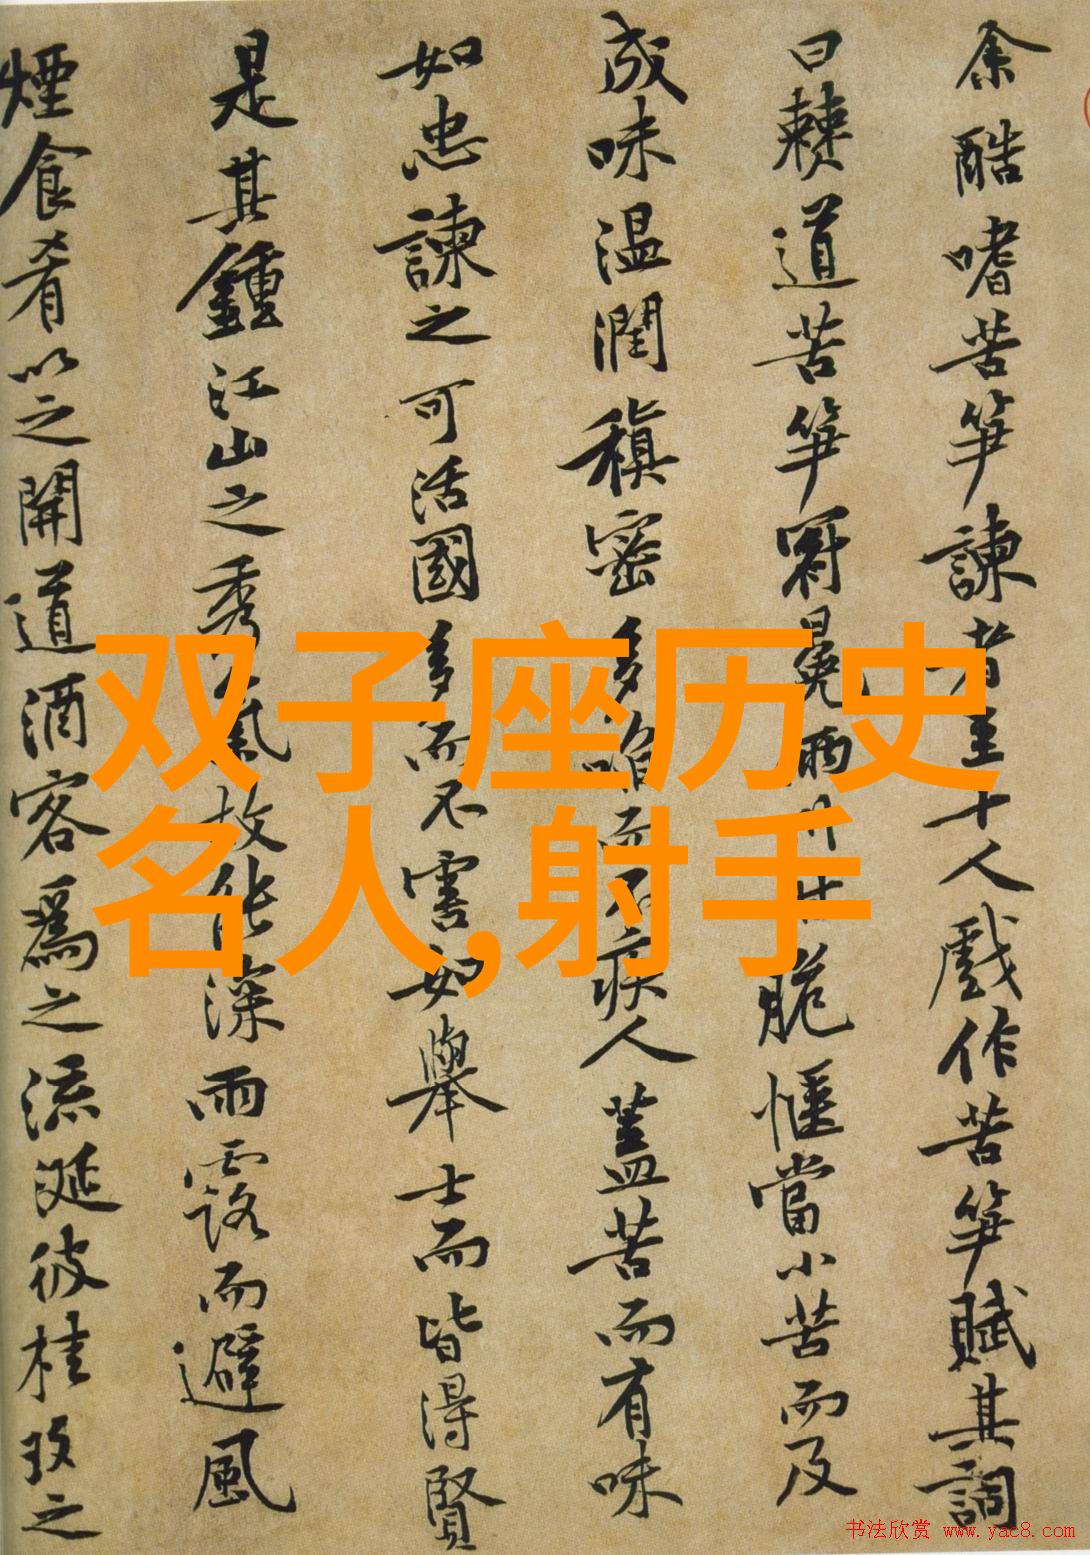 余酷嗜苦笋諫者至十人戲作苦笋賦其詞
曰僰道苦笋冠冕兩川甘脆愜當小苦而及
成味温潤稹密多啗而不疾人蓋苦而有味
如忠諫之可活國多而不害如舉士而皆得賢
是其鍾江山之秀氣故能深雨露而避風
煙食肴以之開道酒客爲之流涎彼桂玫之
双子座历史
名人,射手
书法欣赏 www.yac8.com